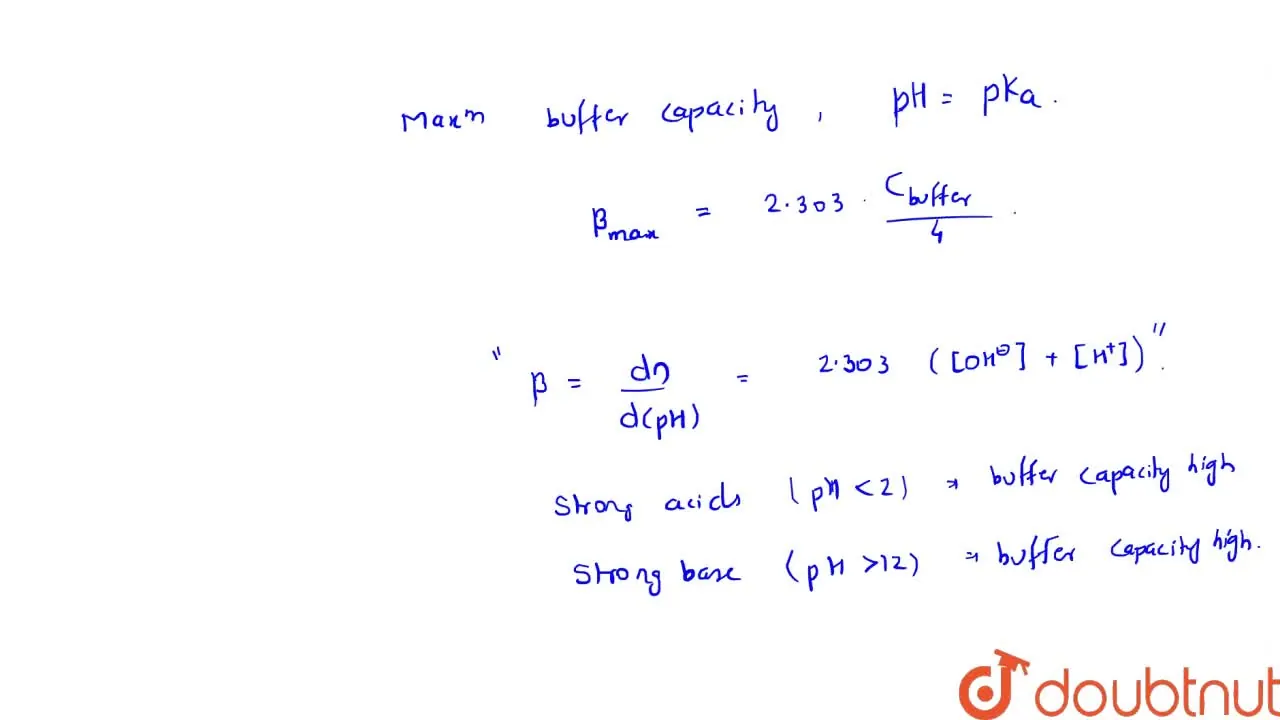 Maxm buffer capacity, pH = pKa.
βmax = 2.303 · Cbuffer/4.
" β = dn/d(pH) = 2.303 ([OH⊖] + [H+])".
Strong acids (pH < 2) → buffer capacity high
Strong base (pH >12) → buffer capacity high.
doubtnut